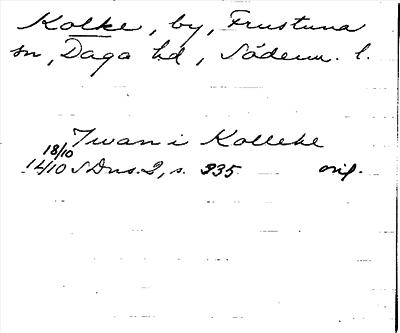 Kolke, by, Frustuna
sn, Daga hd, Söderm. l.
Iwan i Kolleke
18/10
14/10 SDns. 2, s. 335. orig.